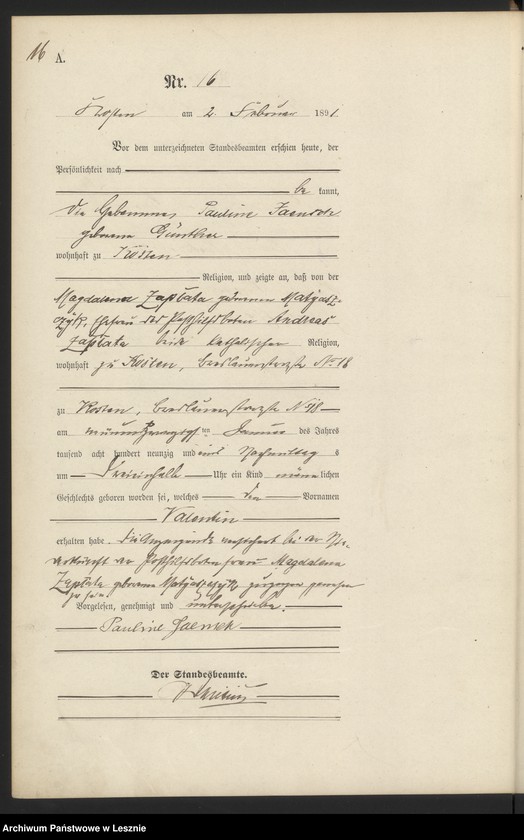 16
A.
Nr. 16
Kosten am 2. Februar 1891
Vor dem unterzeichneten Standesbeamten erschien heute, der
Persönlichkeit nach
be kannt,
die Hebamme, Pauline
geborene Günther
wohnhaft zu Kosten
Religion, und zeigte an, daß von der
Magdalena Zaplata geborenen
Ehefrau des Posthilfsboten Andreas
Zaplata beide katholischer Religion,
wohnhaft zu Kosten, No 18
zu Kosten, No 18
am neunundzwanzigsten Januar des Jahres
tausend acht hundert neunzig und eins Nachmittags
um Uhr ein Kind männlichen
Geschlechts geboren worden sei, welches den Vornamen
Valentin
erhalten habe. Die Anzeigende versichert bei der
der Posthilfsbotenfrau Magdalena
Zaplata geborene zugegen gewesen
zu sein.
Vorgelesen, genehmigt und unterschrieben.
Pauline
Der Standesbeamte.
Archiwum Państwowe w Lesznie